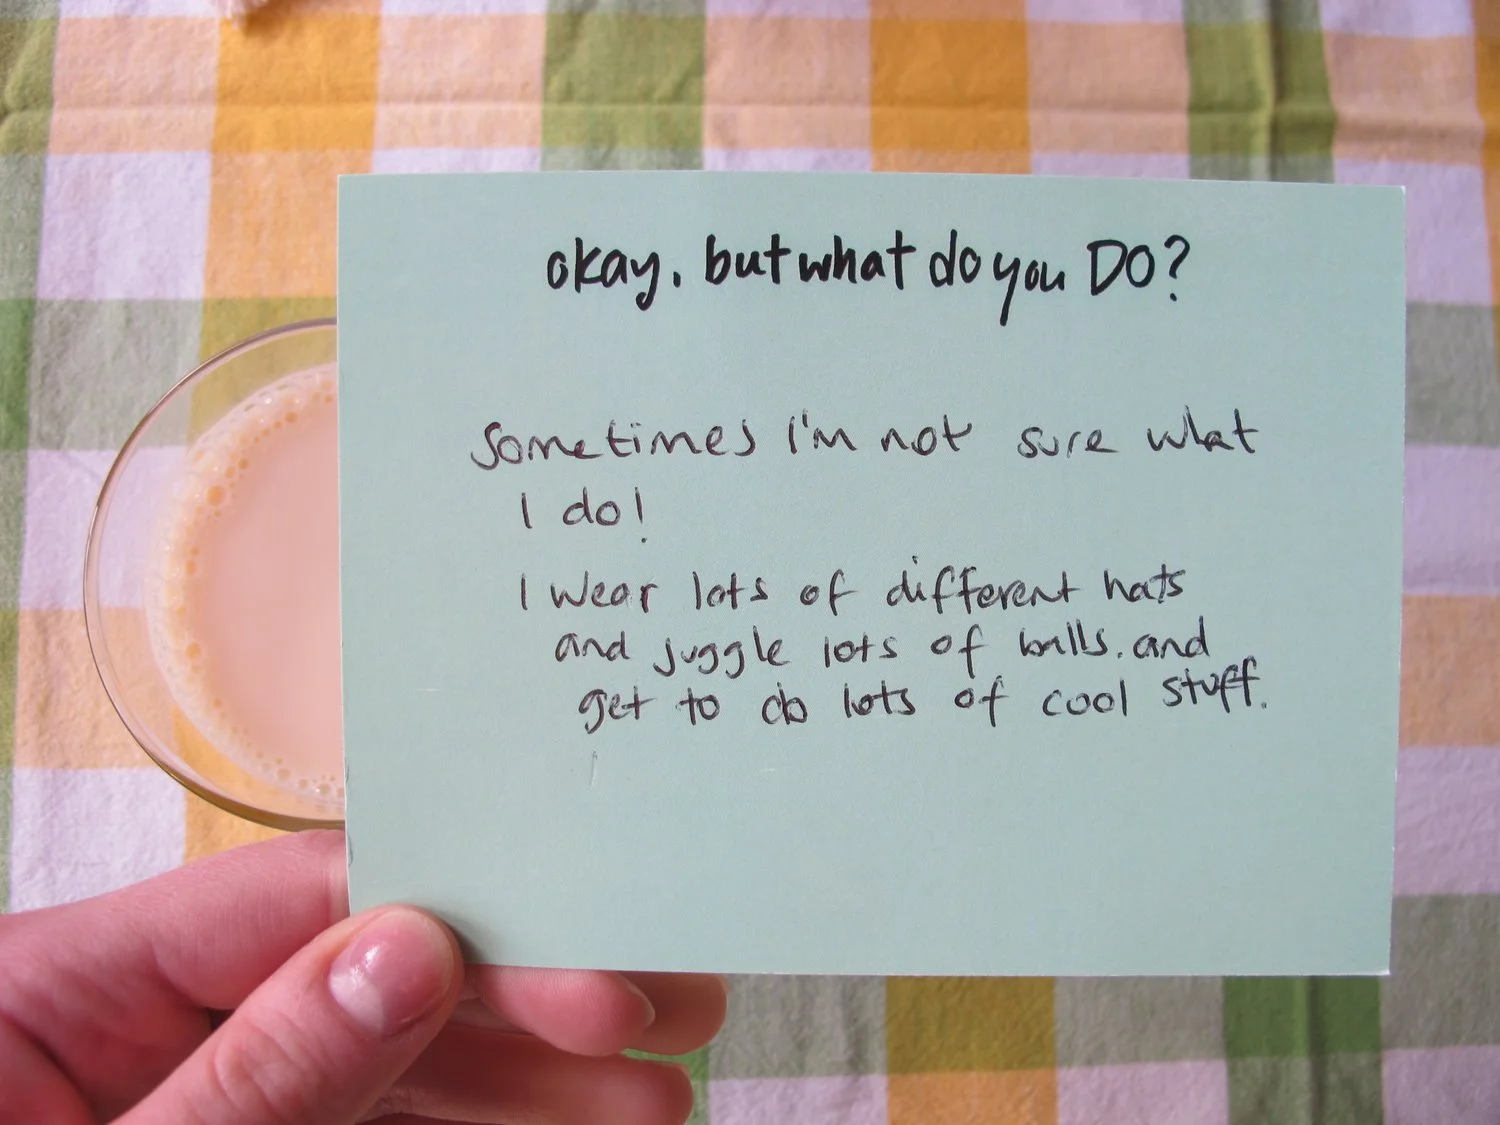 okay, but what do you DO?
Sometimes I'm not sure what
I do!
I wear lots of different hats
and juggle lots of balls. and
get to do lots of cool stuff.